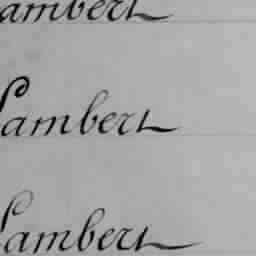 Lambert
Lambert
Lambert